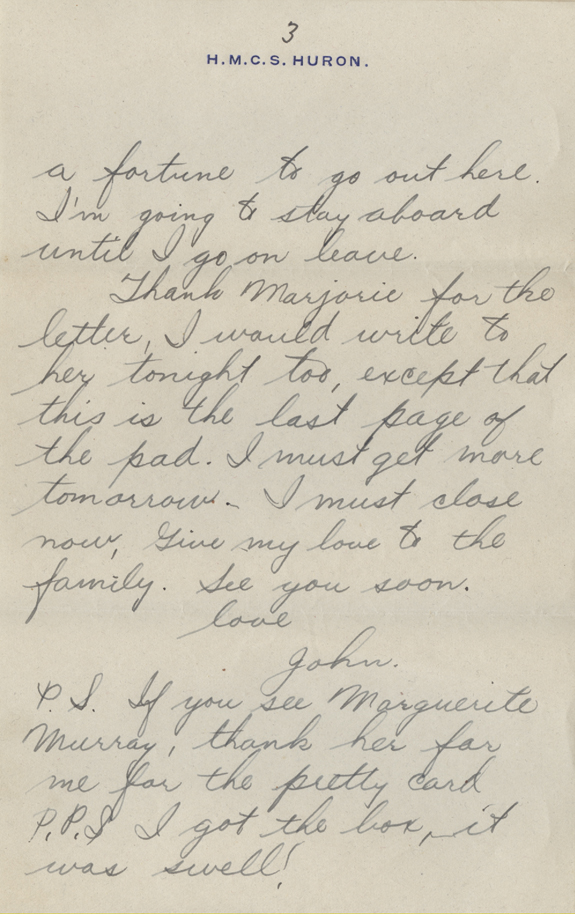 3
H.M.C.S. HURON.
a fortune to go out here.
I'm going to stay aboard
until I go on leave.
Thank Marjorie for the
letter, I would write to
her tonight too, except that
this is the last page of
the pad. I must get more
tomorrow. - I must close
now, Give my love to the
family. See you soon.
love
John.
P.S. If you see Marguerite
Murray, thank her for
me for the pretty card
P.P.S I got the box, it
was swell!